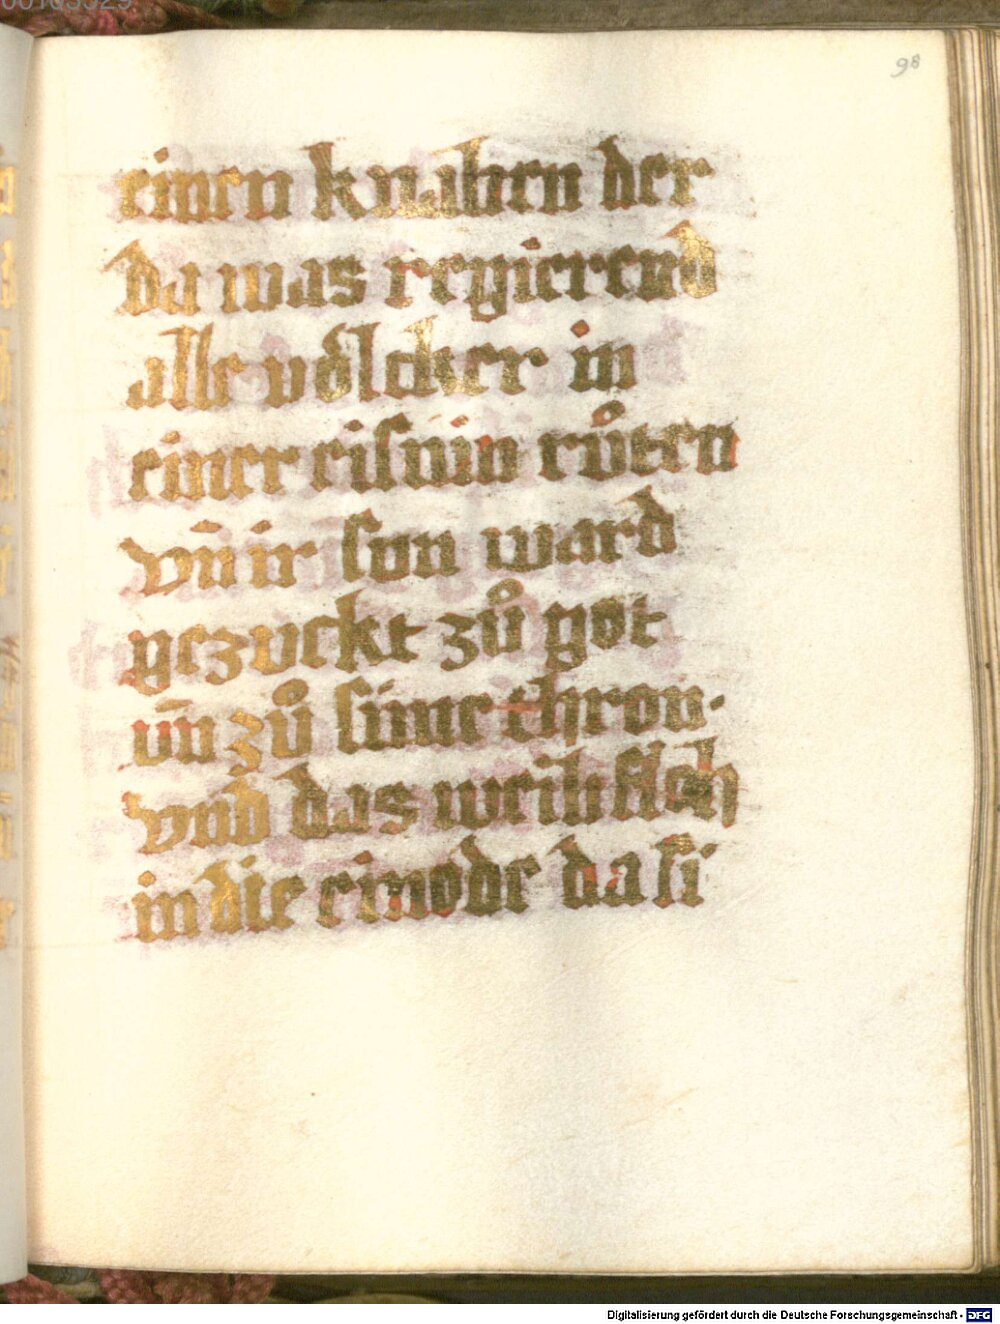 98
einen knaben der
da was regierend
alle völcker in
einer eisnin růten
vn̄ ir son ward
gezuckt zů got
un̄ zů sinne thron·
vnd das weib floh
in die einode da si
Digitalisierung gefördert durch die Deutsche Forschungsgemeinschaft - DFG